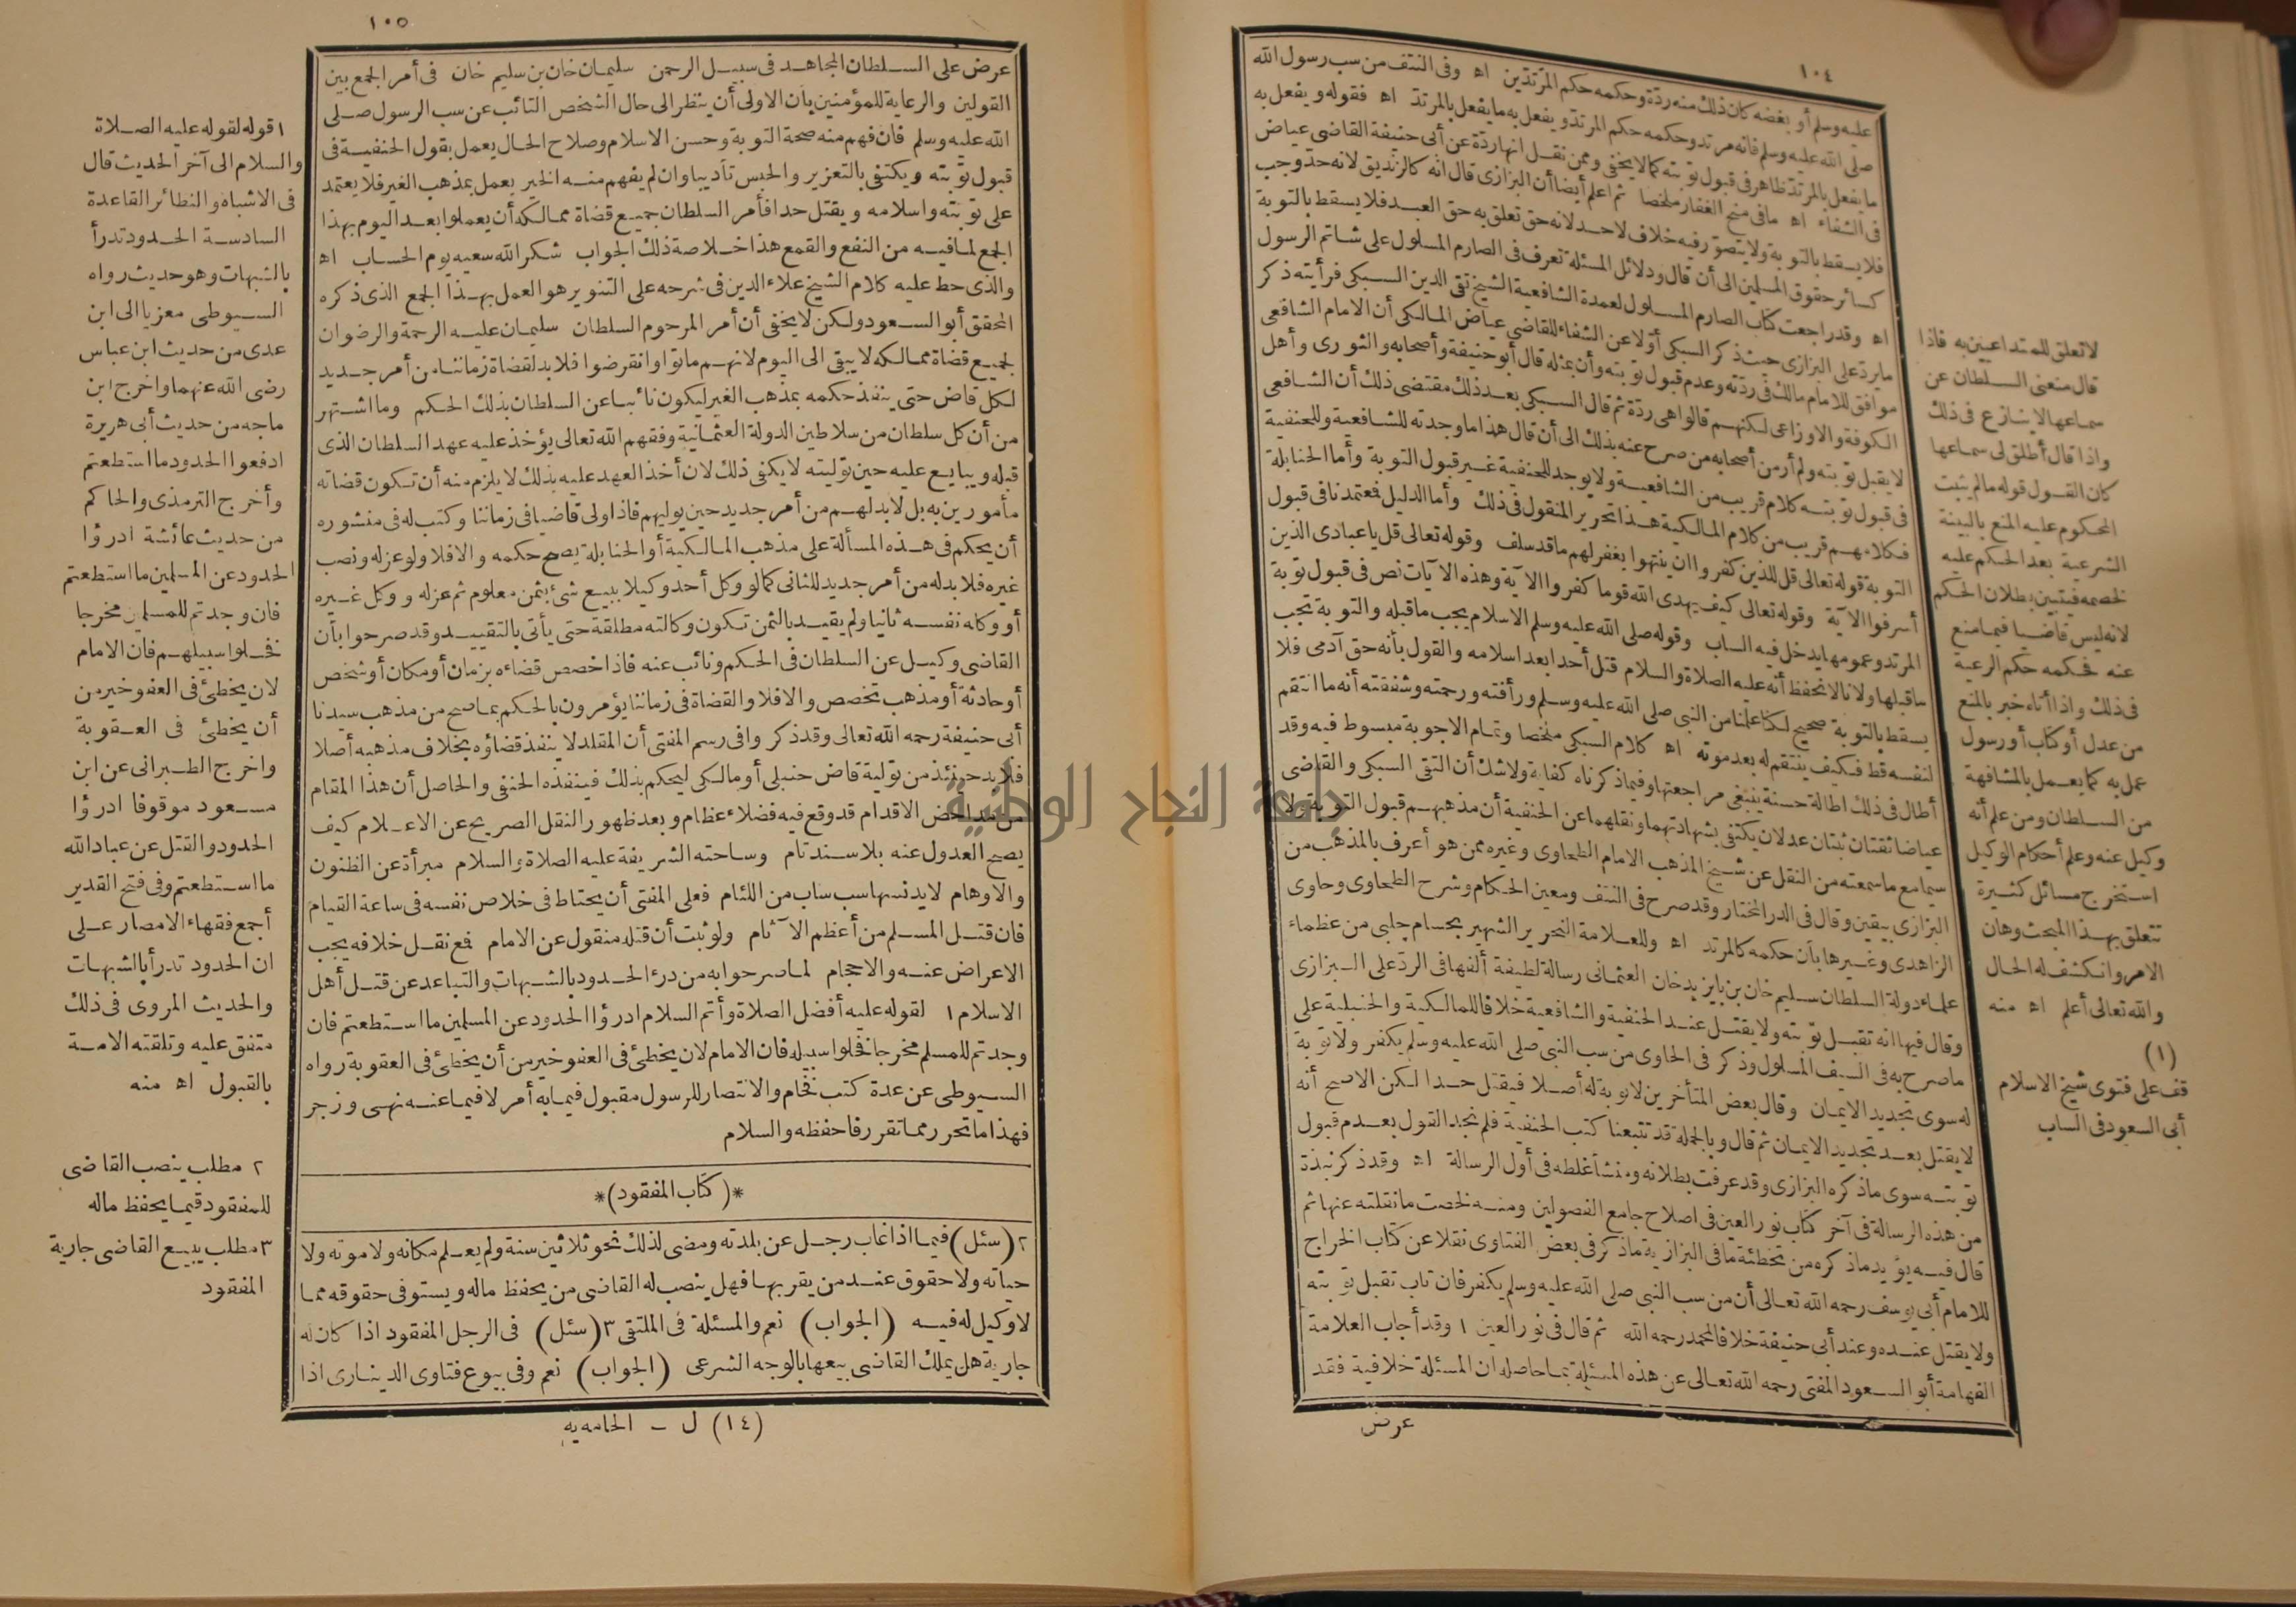 ١٠٤
عليه وسلم أو بغضه كان ذلك منه ردّة وحكمه حكم المرتدّين اه وفى النتف من سب رسول الله
صلى الله عليه وسلم فانه مرتد وحكمه حكم المرتد ويفعل به ما يفعل بالمرتد اه فقوله ويفعل به
ما يفعل بالمرتد ظاهر فى قبول توبته كما لا يخفى وممن نقل انها ردّة عن أبى حنيفة القاضى عياض
فى الشفاء اه ما فى منح الغفار ملخصا ثم اعلم أيضا أن البزازى قال انه كالزنديق لانه حدّ وجب
فلا يسقط بالتوبة ولا يتصوّر فيه خلاف لاحد لانه حق تعلق به حق العبد فلا يسقط بالتوبة
كسائر حقوق المسلمين الى أن قال ودلائل المسئلة تعرف فى الصارم المسلول على شاتم الرسول
اه وقد راجعت كتاب الصارم المسلول لعمدة الشافعية الشيخ تقى الدين السبكى فرأيته ذكر
ما يردّ على البزازى حيث ذكر السبكى أوّلا عن الشفاء للقاضى عياض المالكى أن الامام الشافعى
موافق للامام مالك فى ردّته وعدم قبول توبته وأن بمثله قال أبو حنيفة وأصحابه والثورى وأهل
الكوفة والاوزاعى لكنهم قالوا هى ردّة ثم قال السبكى بعد ذلك مقتضى ذلك أن الشافعى
لا يقبل توبته ولم أر من أصحابه من صرح عنه بذلك الى أن قال هذا ما وجدته للشافعية وللحنفية
فى قبول توبته كلام قريب من الشافعية ولا يوجد للحنفية غير قبول التوبة وأما الحنابلة
فكلامهم قريب من كلام المالكية هذا تحرير المنقول فى ذلك وأما الدليل فعتمدنا فى قبول
التوبة قوله تعالى قل للذين كفروا ان ينتهوا يغفر لهم ما قد سلف وقوله تعالى قل يا عبادى الذين
أسرفوا الآية وقوله تعالى كيف يهدى الله قوما كفروا الآية وهذه الآيات نص فى قبول توبة
المرتد وعمومها يدخل فيه الساب وقوله صلى الله عليه وسلم الاسلام يجب ما قبله والتوبة تجب
ما قبلها ولانا لا نحفظ أنه عليه الصلاة والسلام قتل أحدا بعد اسلامه والقول بأنه حق آدمى فلا
يسقط بالتوبة صحيح لكنا علمنا من النبى صلى الله عليه وسلم ورأفته ورحمته وشفقته أنه ما انتقم
لنفسه قط فكيف ينتقم له بعد موته اه كلام السبكى ملخصا وتمام الاجوبة مبسوط فيه وقد
أطال فى ذلك اطالة حسنة ينبغى مراجعتها وفيما ذكرناه كفاية ولا شك أن التقى السبكى والقاضى
عياضا ثقتان ثبتان عدلان يكتفى بشهادتهما ونقلهما عن الحنفية أن مذهبهم قبول التوبة ولا
سيما مع ما سمعته من النقل عن شيخ المذهب الامام الطحاوى وغيره ممن هو أعرف بالمذهب من
البزازى بيقين وقال فى الدر المختار وقد صرح فى النتف ومعين الحكام وشرح الطحاوى وحاوى
الزاهدى وغيرها بأن حكمه كالمرتد اه وللعلامة النحرير الشهير بحسام جلبى من عظماء
علماء دولة السلطان سليم خان بن بايزيد خان العثمانى رسالة لطيفة ألفها فى الردّ على البزازى
وقال فيها انه تقبل توبته ولا يقتل عند الحنفية والشافعية خلافا للمالكية والحنبلية على
ما صرح به فى السيف المسلول وذكر فى الحاوى من سب النبى صلى الله عليه وسلم يكفر ولا توبة
له سوى تجديد الايمان وقال بعض المتأخرين لا توبة له أصلا فيقتل حدا لكن الاصح أنه
لا يقتل بعد تجديد الايمان ثم قال وبالجملة قد تتبعنا كتب الحنفية فلم نجد القول بعدم قبول
توبته سوى ما ذكره البزازى وقد عرفت بطلانه ومنشأ غلطه فى أول الرسالة اه وقد ذكر نبذة
من هذه الرسالة فى آخر كتاب نور العين فى اصلاح جامع الفصولين ومنه لخصت ما نقلته عنها ثم
قال فيه يؤيد ما ذكره من تخطئة ما فى البزازية ما ذكر فى بعض الفتاوى نقلا عن كتاب الخراج
للامام أبى يوسف رحمه الله تعالى أن من سب النبى صلى الله عليه وسلم يكفر فان تاب تقبل توبته
ولا يقتل عنده وعند أبى حنيفة خلافا لمحمد رحمه الله ثم قال فى نور العين ١ وقد أجاب العلامة
الفهامة أبو السعود المفتى رحمه الله تعالى عن هذه المسئلة بما حاصله ان المسئلة خلافية فقد
عرض
لا تعلق للمتداعيين به فاذا
قال منعنى السلطان عن
سماعها لا ينازع فى ذلك
واذا قال أطلق لى سماعها
كان القول قوله ما لم يثبت
المحكوم عليه المنع بالبينة
الشرعية بعد الحكم عليه
لخصمه فيتبين بطلان الحكم
لانه ليس قاضيا فيما منع
عنه فحكمه حكم الرعية
فى ذلك واذا أتاه خبر بالمنع
من عدل أو كتاب أو رسول
عمل به كما يعمل بالمشافهة
من السلطان ومن علم أنه
وكيل عنه وعلم أحكام الوكيل
استخرج مسائل كثيرة
تتعلق بهذا المبحث وهان
الامر وانكشف له الحال
والله تعالى أعلم اه منه
(١)
قف على فتوى شيخ الاسلام
أبى السعود فى الساب
١٠٥
عرض على السلطان المجاهد فى سبيل الرحمن سليمان خان بن سليم خان فى أمر الجمع بين
القولين والرعاية للمؤمنين بأن الاولى أن ينظر الى حال الشخص التائب عن سب الرسول صلى
الله عليه وسلم فان فهم منه صحة التوبة وحسن الاسلام وصلاح الحال يعمل بقول الحنفية فى
قبول توبته ويكتفى بالتعزير والحبس تأديبا وان لم يفهم منه الخير يعمل بمذهب الغير فلا يعتمد
على توبته واسلامه ويقتل حدا فأمر السلطان جميع قضاة ممالكه أن يعملوا بعد اليوم بهذا
الجمع لما فيه من النفع والقمع هذا خلاصة ذلك الجواب شكر الله سعيه يوم الحساب اه
والذى حط عليه كلام الشيخ علاء الدين فى شرحه على التنوير هو العمل بهذا الجمع الذى ذكره
المحقق أبو السعود ولكن لا يخفى أن أمر المرحوم السلطان سليمان عليه الرحمة والرضوان
لجميع قضاة ممالكه لا يبقى الى اليوم لانهم ماتوا وانقرضوا فلا بد لقضاة زماننا من أمر جديد
لكل قاض حتى ينفذ حكمه بمذهب الغير ليكون نائبا عن السلطان بذلك الحكم وما اشتهر
من أن كل سلطان من سلاطين الدولة العثمانية وفقهم الله تعالى يؤخذ عليه عهد السلطان الذى
قبله ويبايع عليه حين توليته لا يكفى ذلك لان أخذ العهد عليه بذلك لا يلزم منه أن تكون قضاته
مأمورين به بل لا بد لهم من أمر جديد حين يوليهم فاذا ولى قاضيا فى زماننا وكتب له فى منشوره
أن يحكم فى هذه المسألة على مذهب المالكية أو الحنابلة يصح حكمه والا فلا ولو عزله ونصب
غيره فلا بد له من أمر جديد للثانى كما لو وكل أحد وكيلا ببيع شئ بثمن معلوم ثم عزله ووكل غيره
أو وكله نفسه ثانيا ولم يقيد بالثمن تكون وكالته مطلقة حتى يأتى بالتقييد وقد صرحوا بأن
القاضى وكيل عن السلطان فى الحكم ونائب عنه فاذا خصص قضاءه بزمان أو مكان أو شخص
أو حادثة أو مذهب تخصص والا فلا والقضاة فى زماننا يؤمرون بالحكم بما صح من مذهب سيدنا
أبى حنيفة رحمه الله تعالى وقد ذكروا فى رسم المفتى أن المقلد لا ينفذ قضاؤه بخلاف مذهبه أصلا
فلا بد حينئذ من تولية قاض حنبلى أو مالكى ليحكم بذلك فينفذه الحنفى والحاصل أن هذا المقام
من مداحض الاقدام قد وقع فيه فضلاء عظام وبعد ظهور النقل الصريح عن الاعلام كيف
يصح العدول عنه بلا سند تام وساحته الشريفة عليه الصلاة والسلام مبرأة عن الظنون
والاوهام لا يدنسها سب ساب من اللئام فعلى المفتى أن يحتاط فى خلاص نفسه فى ساعة القيام
فان قتل المسلم من أعظم الآثام ولو ثبت أن قتله منقول عن الامام فمع نقل خلافه يجب
الاعراض عنه والاحجام لما صرحوا به من درء الحدود بالشبهات والتباعد عن قتل أهل
الاسلام ١ لقوله عليه أفضل الصلاة وأتم السلام ادرؤا الحدود عن المسلمين ما استطعتم فان
وجدتم للمسلم مخرجا فخلوا سبيله فان الامام لان يخطئ فى العفو خير من أن يخطئ فى العقوبة رواه
السيوطى عن عدة كتب فخام والانتصار للرسول مقبول فيما به أمر لا فيما عنه نهى وزجر
فهذا ما تحرر مما تقرر فاحفظه والسلام
*(كتاب المفقود)*
٢ (سئل) فيما اذا غاب رجل عن بلدته ومضى لذلك نحو ثلاثين سنة ولم يعلم مكانه ولا موته ولا
حياته وله حقوق عند من يقر بها فهل ينصب له القاضى من يحفظ ماله ويستوفى حقوقه مما
لا وكيل له فيه (الجواب) نعم والمسئلة فى الملتقى ٣ (سئل) فى الرجل المفقود اذا كان له
جارية هل يملك القاضى بيعها بالوجه الشرعى (الجواب) نعم وفى بيوع فتاوى الدينارى اذا
(١٤) ل ـ الحامديه
١ قوله لقوله عليه الصلاة
والسلام الى آخر الحديث قال
فى الاشباه والنظائر القاعدة
السادسة الحدود تدرأ
بالشبهات وهو حديث رواه
السيوطى معزيا الى ابن
عدى من حديث ابن عباس
رضى الله عنهما واخرج ابن
ماجه من حديث أبى هريرة
ادفعوا الحدود ما استطعتم
وأخرج الترمذى والحاكم
من حديث عائشة ادرؤا
الحدود عن المسلمين ما استطعتم
فان وجدتم للمسلمين مخرجا
فخلوا سبيلهم فان الامام
لان يخطئ فى العفو خير من
أن يخطئ فى العقوبة
واخرج الطبرانى عن ابن
مسعود موقوفا ادرؤا
الحدود والقتل عن عباد الله
ما استطعتم وفى فتح القدير
أجمع فقهاء الامصار على
ان الحدود تدرأ بالشبهات
والحديث المروى فى ذلك
متفق عليه وتلقته الامة
بالقبول اه منه
٢ مطلب ينصب القاضى
للمفقود قيما يحفظ ماله
٣ مطلب يبيع القاضى جارية
المفقود
جامعة النجاح الوطنية